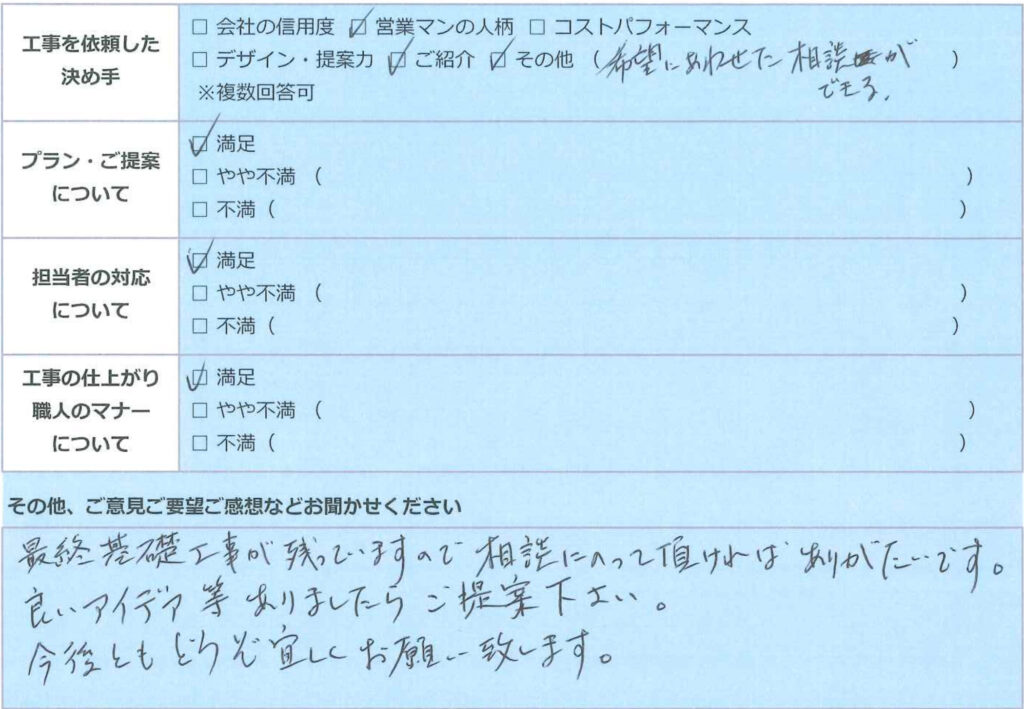 工事を依頼した
決め手
□ 会社の信用度 ☑ 営業マンの人柄 □ コストパフォーマンス
□ デザイン・提案力 ☑ ご紹介 ☑ その他 （希望にあわせた相談が
できる。）
※複数回答可
プラン・ご提案
について
☑ 満足
□ やや不満 （ ）
□ 不満（ ）
担当者の対応
について
☑ 満足
□ やや不満 （ ）
□ 不満（ ）
工事の仕上がり
職人のマナー
について
☑ 満足
□ やや不満 （ ）
□ 不満（ ）
その他、ご意見ご要望ご感想などお聞かせください
最終基礎工事が残っていますので相談にのって頂ければありがたいです。
良いアイデア等ありましたらご提案下さい。
今後ともどうぞ宜しくお願い致します。